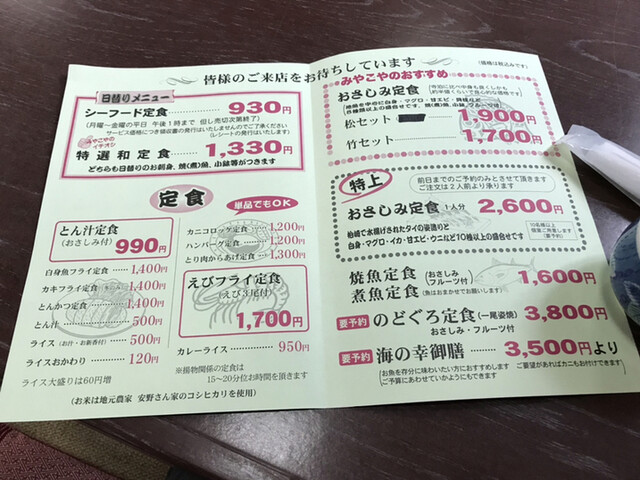 皆様のご来店をお待ちしています
(価格は税込みです)
日替りメニュー
シーフード定食 …… 930円
(月曜～金曜の平日 午後1時まで 但し売切次第終了)
サービス価格につき領収書の発行はいたしませんのでご了承ください
(レシートの発行はいたします)
みやこやのイチオシ
特選和定食 …… 1,330円
どちらも日替りのお刺身、焼(煮)魚、小鉢等がつきます
定食
単品でもOK
とん汁定食
(おさしみ付) 990円
白身魚フライ定食 …… 1,400円
カキフライ定食 …… 1,400円
とんかつ定食 …… 1,400円
とん汁 …… 500円
ライス(お汁・お新香付) …… 500円
ライスおかわり …… 120円
ライス大盛りは60円増
カニコロッケ定食 …… 1,200円
ハンバーグ定食 …… 1,300円
とり肉からあげ定食 …… 1,200円
えびフライ定食
(えび3尾付)
1,700円
カレーライス …… 950円
※揚物関係の定食は
15～20分位お時間を頂きます
(お米は地元農家 安野さん家のコシヒカリを使用)
みやこやのおすすめ
おさしみ定食
松セット 1,900円
竹セット …… 1,700円
特上
前日までのご予約のみとさせて頂きます
ご注文は2人前より承ります
おさしみ定食 1人分 2,600円
柏崎で水揚げされたタイの姿造りと
白身・マグロ・イカ・甘エビ・ウニなど10種以上の盛合せです
焼魚定食 (おさしみ フルーツ付) 1,600円
煮魚定食 (魚はおまかせでお願いします)
要予約 のどぐろ定食 (一尾姿焼) 3,800円
おさしみ・フルーツ付
要予約 海の幸御膳 …… 3,500円より
お魚を存分に味わいたい方におすすめします
ご予算にあわせていかようにもできます
ご要望があればカニもお付けできます